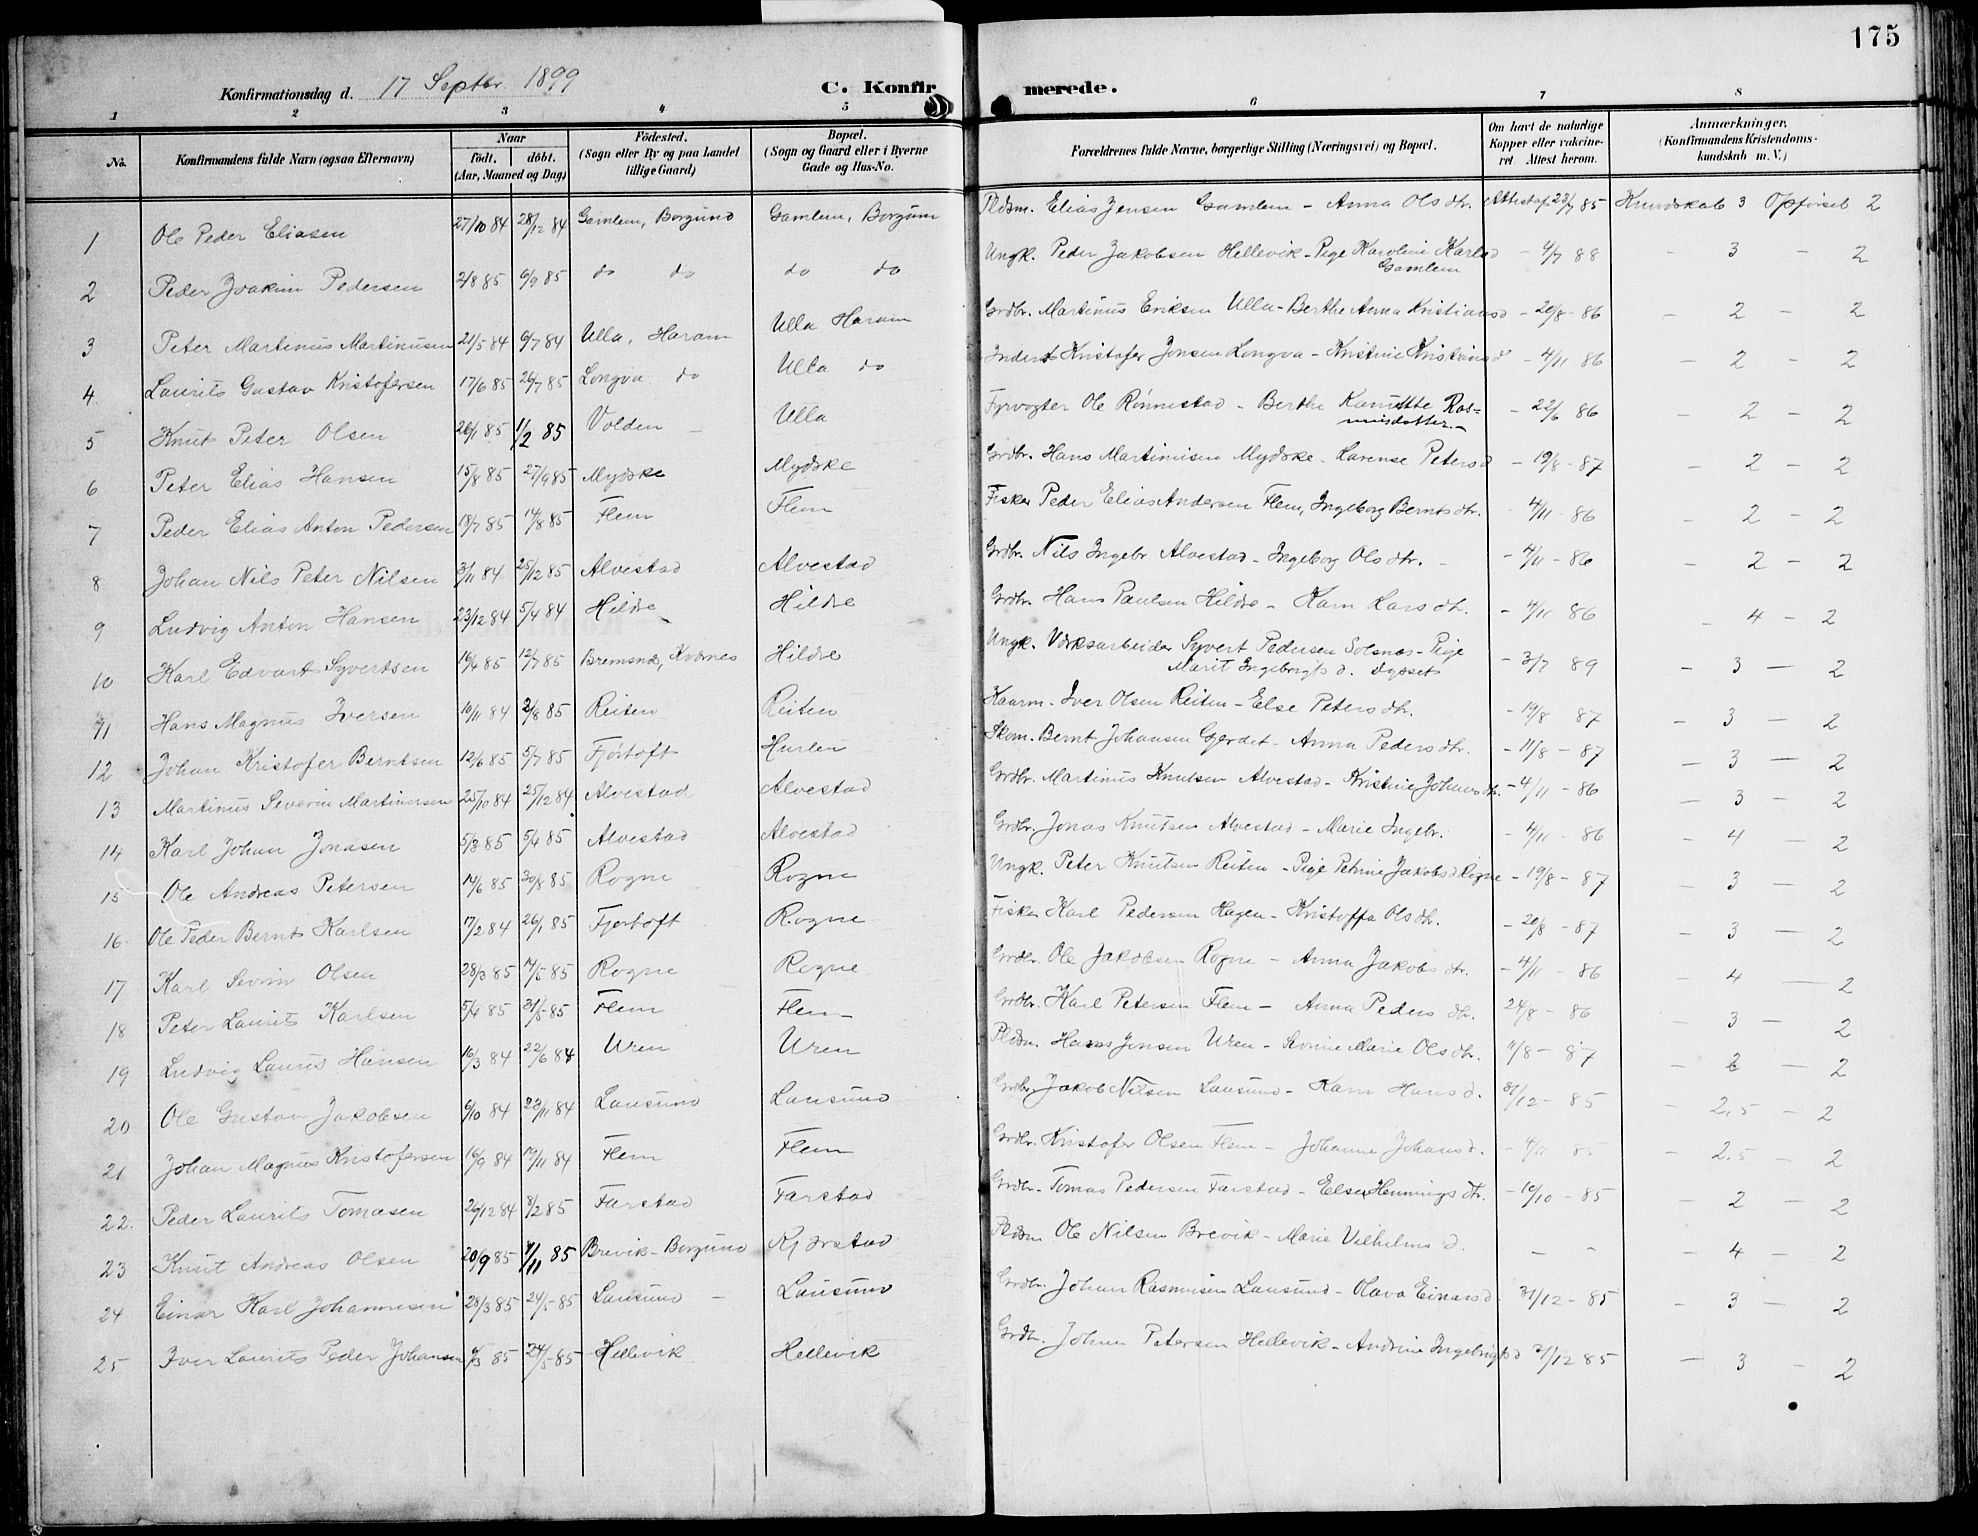 175
Konfirmationsdag d. 17 Septbr. 1899
C. Konfirmerede.
1 2 3 4 5 6 7 8
No.
Konfirmandens fulde Navn (ogsaa Efternavn)
Naar
født. døbt.
(Aar, Maaned og Dag)
Fødested.
(Sogn eller By og paa Landet
tillige Gaard)
Bopæl.
(Sogn og Gaard eller i Byerne
Gade og Hus-No.
Forældrenes fulde Navne, borgerlige Stilling (Næringsvei) og Bopæl.
Om havt de naturlige
Kopper eller vakcine-
ret. Attest herom.
Anmærkninger,
(Konfirmandens Kristendoms-
kundskab m. V.)
1 Ole Peder Eliasen 27/10 84 28/12 84 Gamlem, Borgund Gamlem, Borgum Pldsm. Elias Jensen Gamlem - Anna Olsdtr. Attest af 23/7 85 Kundskab 3 Opførsel 2
2 Peder Joakim Pedersen 2/8 85 6/9 85 do do do do Ungk. Peder Jakobsen Hellevik - Pige Karoline Karlsd Gamlem - 4/7 88 - 3 - 2
3 Peter Martinus Martinusen 21/5 84 6/7 84 Ulla, Haram Ulla Haram Grdbr. Martinus Eriksen Ulla - Berthe Anna Kristiansd - 20/8 - 86 - 2 - 2
4 Laurits Gustav Kristofersen 17/6 85 26/7 85 Longva do Ulla do Inderst Kristofer Jonsen Longva - Kristine Kristensd - 4/11 86 - 2 - 2
5 Knut Peter Olsen 26/1 85 1/2 85 Volden - Ulla Fyrvogter Ole Rønnestad - Berthe Kanutte Ras=
musdatter. - 22/6 86 - 2 - 2
6 Peter Elias Hansen 15/8 85 27/9 85 Mydske Mydske Grdbr. Hans Martinusen Mydske - Karense Petersd - 19/8 - 87 - 2 - 2
7 Peder Elias Anton Pedersen 13/7 85 14/8 85 Flem Flem Fisker Peder Elias Andersen Flem, Ingeborg Berntsdtr. - 4/11 - 86 - 2 - 2
8 Johan Nils Peter Nilsen 3/11 84 25/12 85 Alvestad Alvestad Grdbr. Nils Ingebr. Alvestad - Ingeborg Olsdtr. - 4/11 - 86 - 2 - 2
9 Ludvig Anton Hansen 23/12 84 5/4 84 Hildre Hildre Grdbr. Hans Paulsen Hildre - Karn Larsdtr. - 4/11 86 - 4 - 2
10 Karl Edvart Syvertsen 16/4 85 12/7 85 Bremsnæs, Kvernes Hildre Ungk. Værksarbeider Syvert Pedersen Solsnæs - Pige
Marit Ingebrigts d. - 3/7 89 - 3 - 2
11 Hans Magnus Iversen 10/11 84 2/8 85 Reiten Reiten Kaarm. Iver Olsen Reiten - Else Petersdtr. - 19/8 87 - 3 - 2
12 Johan Kristofer Berntsen 12/6 85 5/7 85 Fjørtoft Hurlen Skom. Bernt Johansen Gjerdet - Anna Pedersdtr. - 11/8 - 87 - 3 - 2
13 Martinus Severin Martinusen 25/10 84 25/12 84 Alvestad Alvestad Grdbr. Martinus Knutsen Alvestad - Kristine Johansdtr. - 4/11 - 86 - 3 - 2
14 Karl Johan Jonasen 5/3 85 5/4 85 Alvestad Alvestad Grdbr. Jonas Knutsen Alvestad - Marie Ingebr. - 4/11 - 86 - 4 - 2
15 Ole Andreas Petersen 14/6 85 30/8 85 Rogne Rogne Ungk. Peter Knutsen Reiten - Pige Petrine Jakobsd Rogne - 19/8 - 87 - 3 - 2
16 Ole Peder Bernt Karlsen 17/2 84 26/1 85 Fjørtoft Rogne Fisker Karl Pedersen Hagen - Kristoffa Olsdtr. - 20/8 - 87 - 3 - 2
17 Karl Sevrin Olsen 28/3 85 14/5 85 Rogne Rogne Grdbr. Ole Jakobsen Rogne - Anna Jakobsdtr. - 4/11 - 86 - 4 - 2
18 Peter Laurits Karlsen 5/4 85 31/5 85 Flem Flem Grdbr. Karl Petersen Flem - Anna Pedersdtr. 24/8 - 86 - 3 - 2
19 Ludvig Laurits Hansen 16/3 84 22/6 84 Uren Uren Pldsm. Hans Jensen Uren - Sevrine Marie Olsdtr. 11/8 - 87 - 2
20 Ole Gustav Jakobsen 6/10 84 23/11 84 Lausund Lausund Grdbr. Jakob Nilsen Lausund - Karn Hansd. 31/12 - 85 - 2,5 - 2
21 Johan Magnus Kristofersen 16/9 84 19/11 84 Flem Flem Grdbr. Kristofer Olsen Flem - Johanne Johansd. - 4/11 85 - 2,5 - 2
22. Peder Laurits Tomasen 26/12 84 8/2 85 Farstad Farstad Grdbr. Tomas Pedersen Farstad - Else Hennings dtr. - 10/10 - 85 - 2 - 2
23 Knut Andreas Olsen 20/9 85 1/11 85 Brevik - Borgund Kjerstad Pldsm Ole Nilsen Brevik - Marie Vilhelmsd. - - - 4 - 2
24 Einar Karl Johannesen 28/3 85 24/5 85 Lausund - Lausund Grdbr. Johan Rasmusen Lausund - Olava Einarsd. 31/12 - 85 - 3 - 2
25 Iver Laurits Peder Johansen 9/3 85 24/5 85 Hellevik Hellevik Grdbr. Johan Petersen Hellevik - Andrine Ingebrigtsd 31/12 85 - 3 - 2